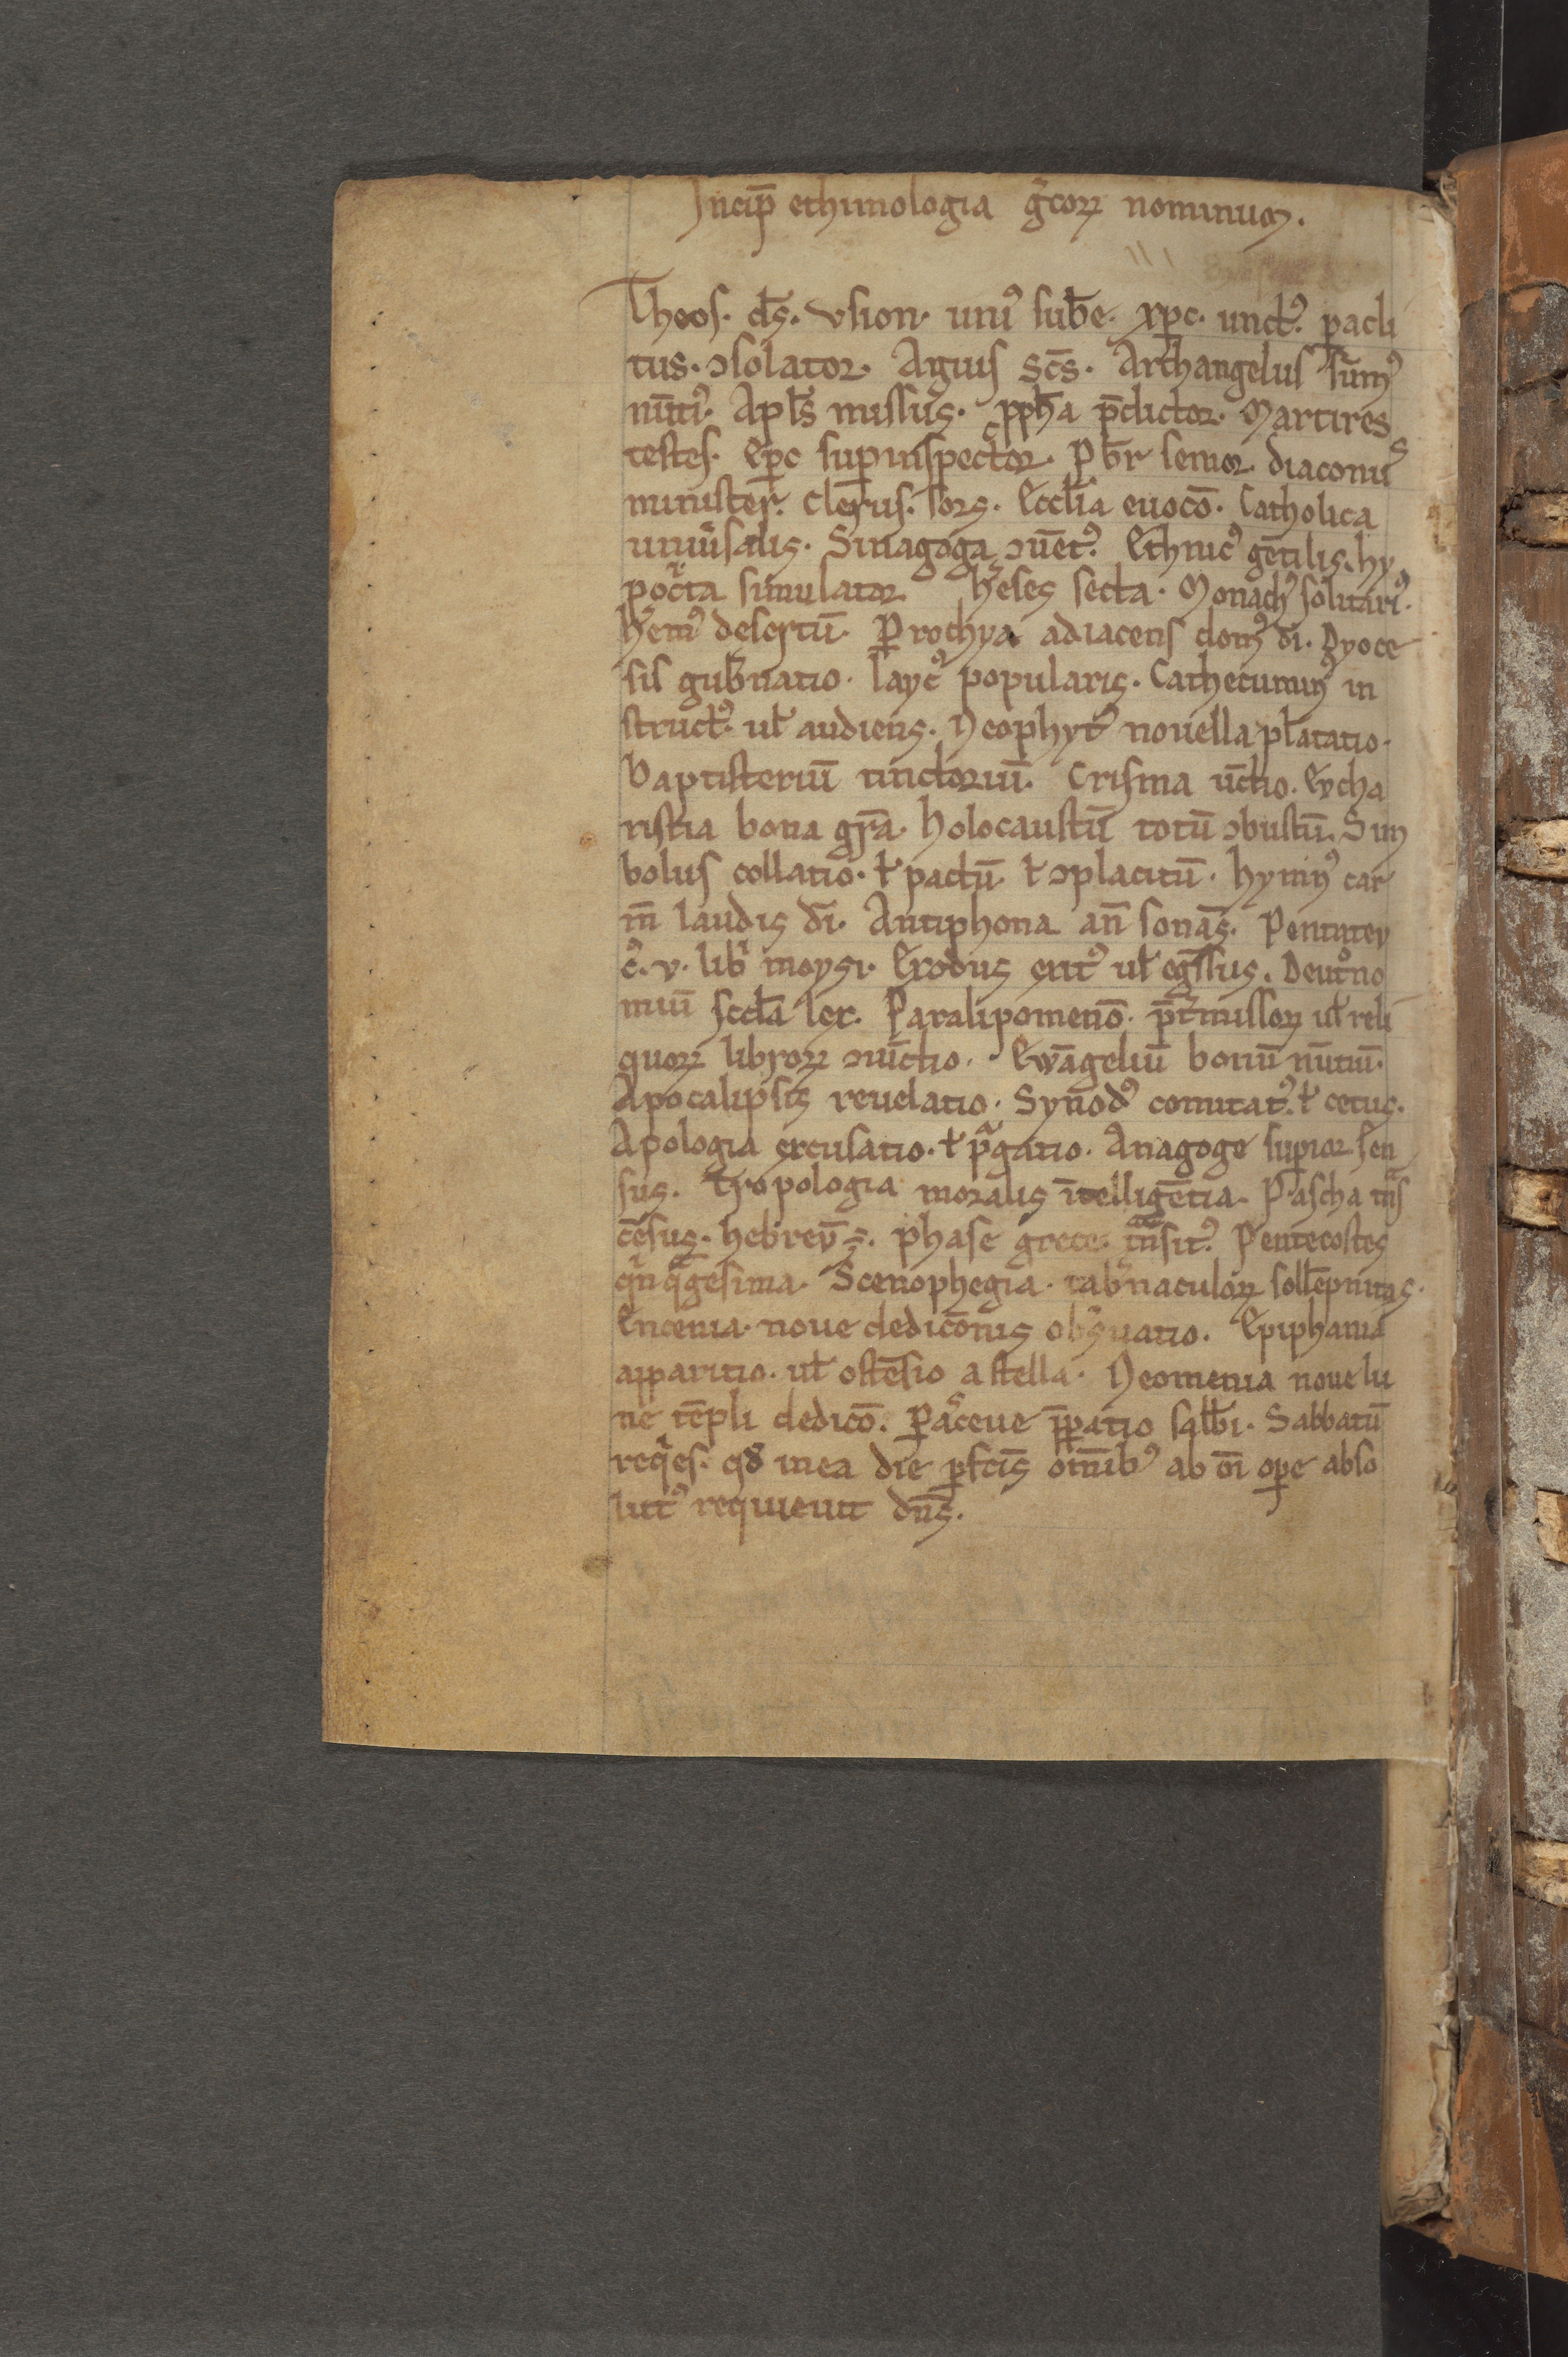 Incip̄ ethimologia g̃coꝝ nominum.
Theos. ds̄. vsion. uniꝰ sub̄e. xp̄c. unctꝰ. ꝑacli
tus. ↄsolator. Agius sc̄s. Archangelus sūmꝰ
nūtiꝰ. Apl̄s missus. ꝓph̄a p̄dictor. Martires
testes. Ep̄c suꝑinspector. Pb̄r senior. diaconus
minister. Clerus. sors. Eccl̄ia euocō. Catholica
uniu̾salis. Sinagoga ↄuētꝰ. Ethnicꝰ gētilis. hy
pocͥta simulator heͬses secta. Monachꝰ solitariꝰ.
heͬmꝰ desertū. Ꝑrochya adiacens domꝰ dī. Dyoce
sis gub̾natio. laycꝰ popularis. Cathecuminꝰ in
structꝰ. ul̄ audiens. Neophytꝰ nouella plātatio.
Baptisteriū tinctoriū. Crisma ūctio. Eycha
ristia bona gr̄a. holocaustū totū ↄbustū. Sim
bolus collatio. ł pactū. ł ↄplacitū. hymnꝰ car
m̄ laudis dī. Antiphona an̄ sonās. Pentatey
cͥ. v. libͥ moysi. Exodus exitꝰ ul̄ egͤssus. Deut̾no
miū sc̄da lex. Paralipomenō. p̄t̾missoꝝ ul̄ reli
quoꝝ libroꝝ ↄiūctio. Ewāgeliū bonū nūtiū.
Apocalipsis reuelatio. Synodꝰ comitatꝰ. ł cetus.
Apologia excusatio. ł pͬgatio. Anagoge suꝑior sen
sus. Tropologia moralis ītelligētia. Pascha tͣns
cēsus. hebreū ÷. phase grece. tͣnsitꝰ. Pentecostes
qͥnqͣgesima. Scenophegia. tab̾naculoꝝ sollēpnitas.
Encenia. noue dedicōnis obs̾uatio. Epiphania
apparitio. ul̄ ostēsio a stella. Neomenia noue lu
ne tēpli dedicō. Ꝑasceue p̄ꝑatio sabb̄i. Sabbatū
reqͥes. qđ in ea die ꝑfc̄is om̄ibꝰ ab oī oꝑe abso
lutꝰ requieuit dn̄s.